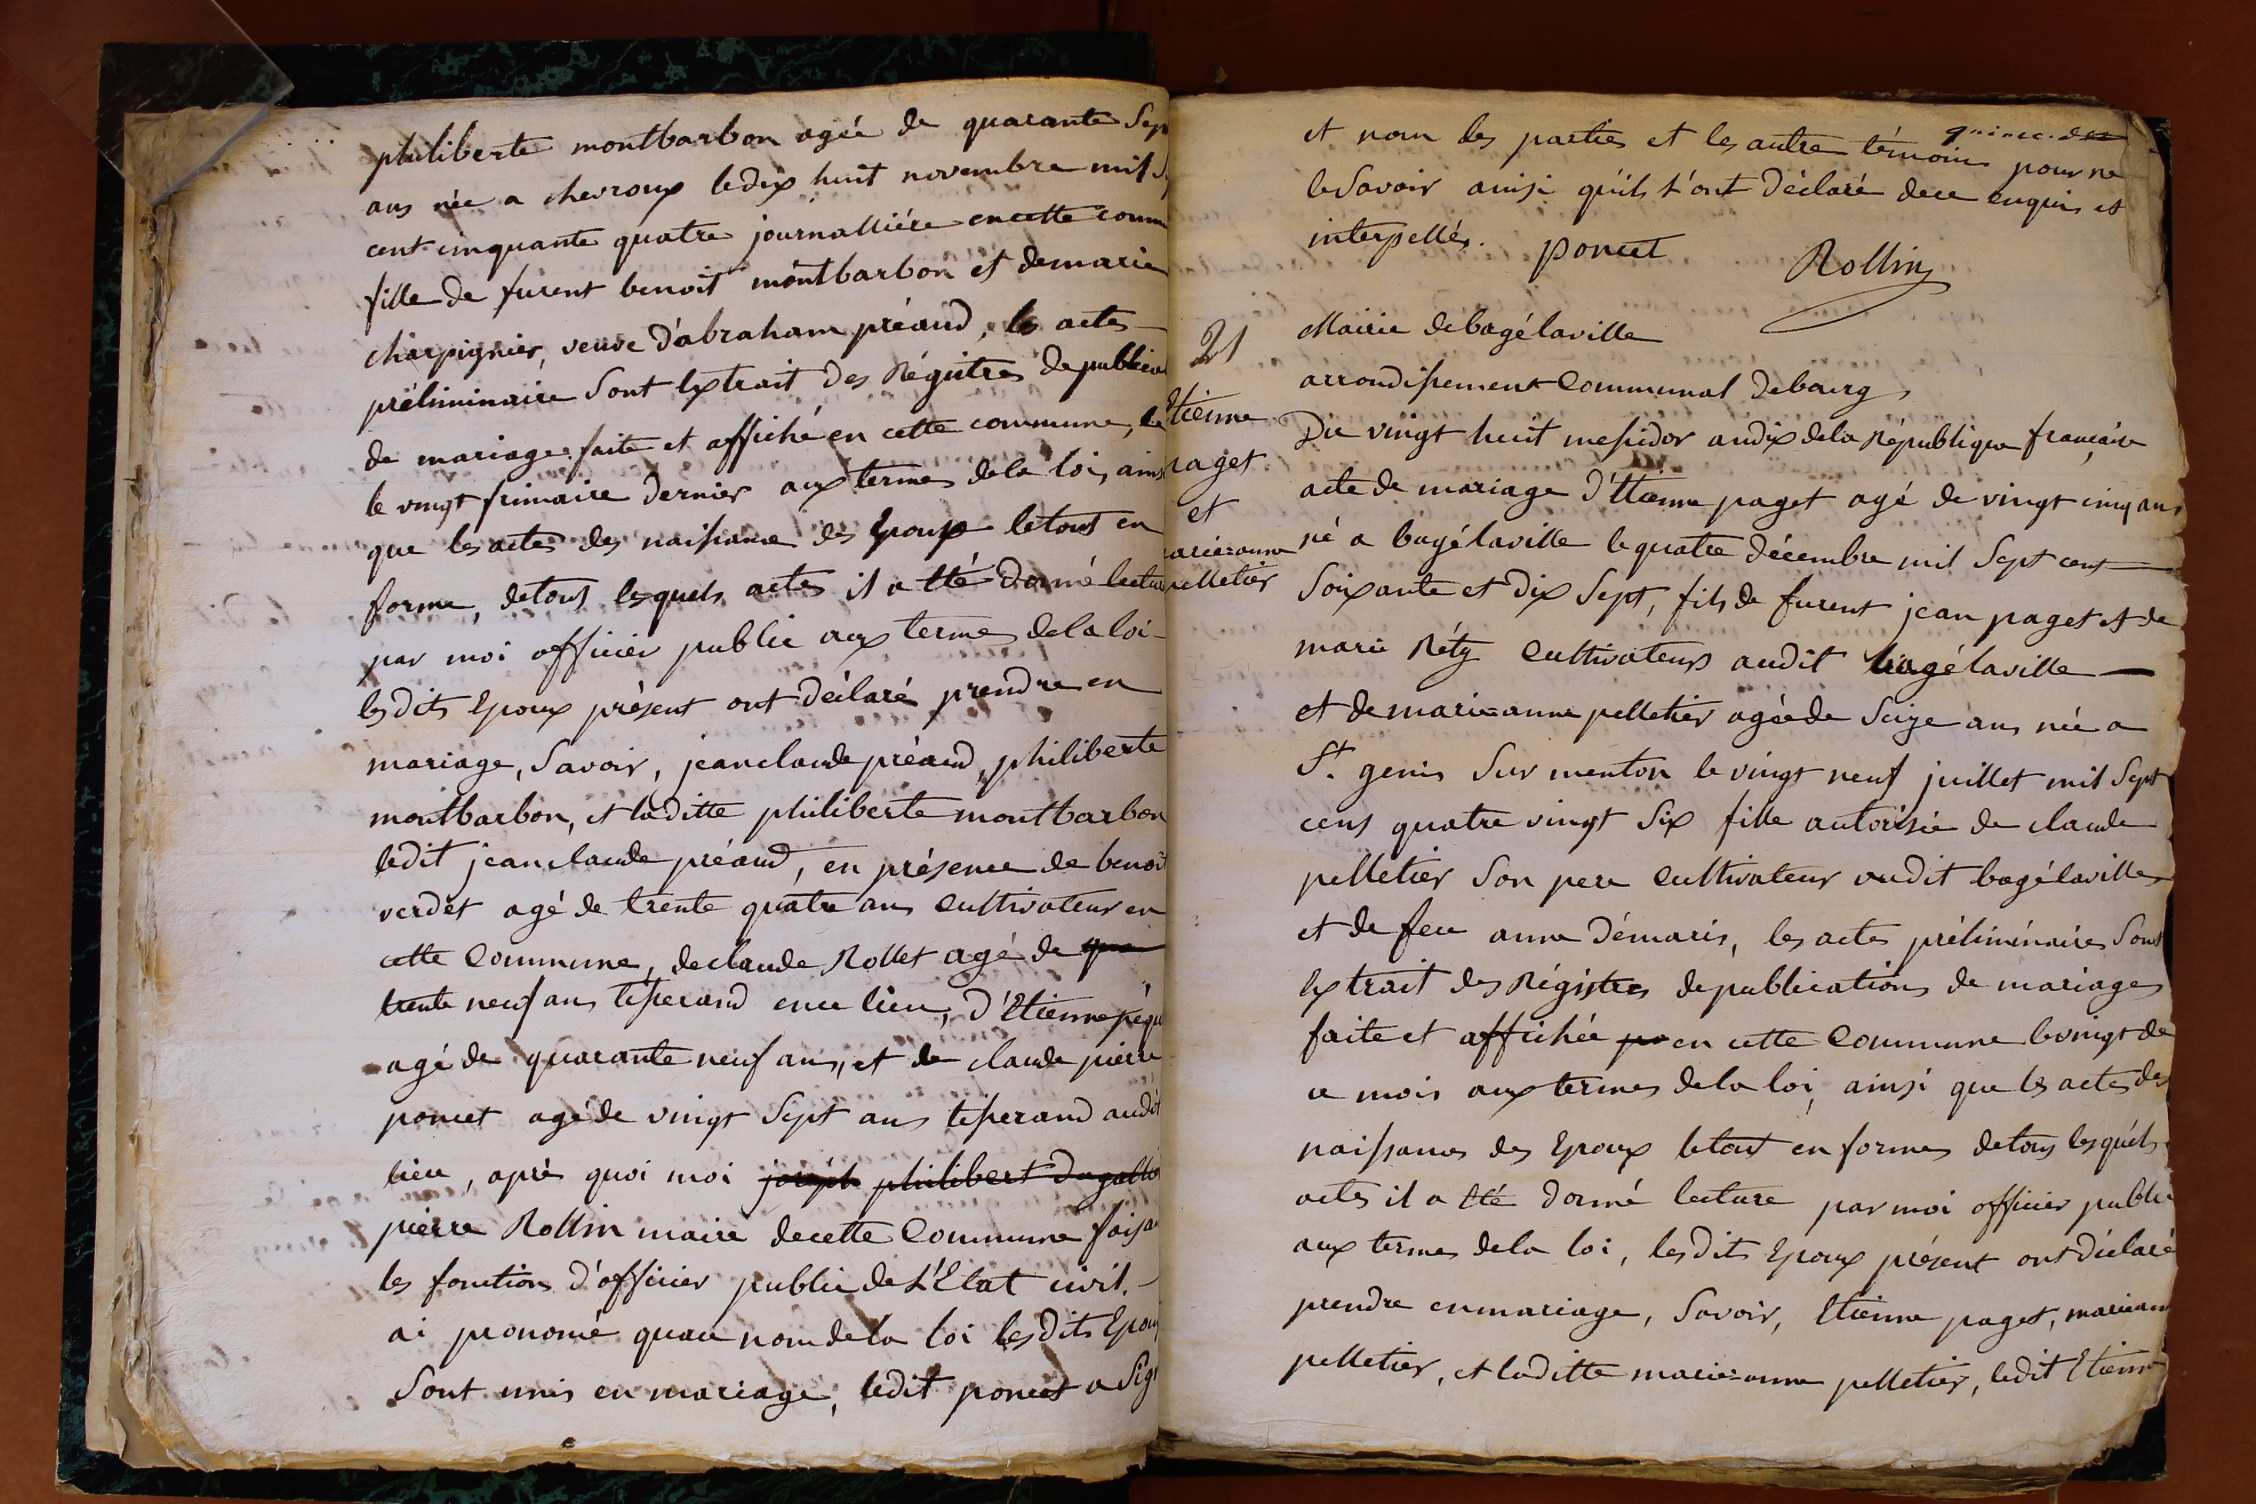 philiberte montbarbon agée de quarante Sep
ans née a chevroux ledix huit novembre mil S
cent cinquante quatre journalliére encette comm
fille de furent benoit montbarbon et demarie
charpignier, veuve d'abraham préaud, les actes
préliminaire Sont Extrait des Régistres de publica
de mariage faite et affiché en cette commune, le
le vingt frimaire dernier aux termes dela loi, ains
que les actes des naissance des Epoux letout en
forme, detout lesquels actes il a Eté donné lectur
par moi officier public aux terme dela loi
lesdits Epoux présent ont déclaré prendre en
mariage, Savoir, jeanclaude préaud, philiberte
montbarbon, et laditte philiberte montbarbon
ledit jeanclaude préaud, en présence de benoit
verdet agé de trente quatre ans Cultivateur en
cette Commune, declaude Rollet agé de qua
trente neuf ans tisserand ence lieu, d'Etienne péqu
agé de quarante neuf ans, et de claude pierre
poncet agé de vingt Sept ans tisserand audit
lieu, après quoi moi joseph philibert
pierre Rollin maire decette Commune faisan
les fonction d'officier public de L'Etat civil.
ai prononcé quau nom dela loi lesdits Epoux
Sont unis en mariage, ledit poncet a Sig
quinze
et nom les parties et les autre témoins pour ne
le Savoir ainsi quils l'ont déclaré dece enquis et
interpellés. poncet Rollin
21
Etienne
paget
et
marie=anne
pelletier
Mairie debagélaville
arrondissement Communal debourg
Du vingt huit messidor andix dela République française
acte de mariage d'Etienne paget agé de vingt cinq ans
né a bagélaville le quatre décembre mil Sept cent
Soixante et dix Sept, fils de furent jean paget et de
marie Réty Cultivateurs audit bagélaville
et demarie=anne pelletier agée de Seize ans née a
St. genis Sur menton le vingt neuf juillet mil Sept
cens quatre vingt Six fille autorisée de claude
pelletier Son pere Cultivateur audit bagélaville
et de feu anne démaris, les actes préliminaire Sont
Extrait des Régistres depublications de mariages
faite et affichée pa en cette Commune levingt de
ce mois aux termes dela loi, ainsi que les actes des
naissances des Epoux letout en formes detous lesquéls
actes il a Eté donné lecture par moi officier public
aux termes dela loi, lesdits Epoux présent ont déclaré
prendre enmariage, Savoir, Etienne paget, marieann
pelletier, et laditte marie=anne pelletier, ledit Etienne